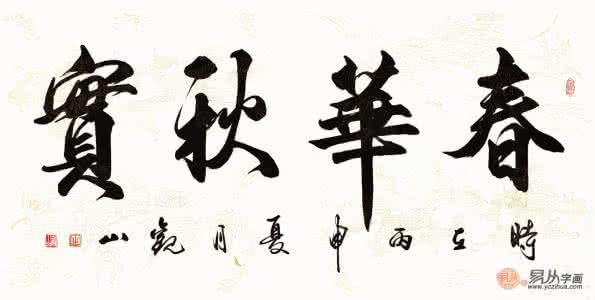 春華秋實
時在丙申夏月觀山
易从字画
www.yozihua.com